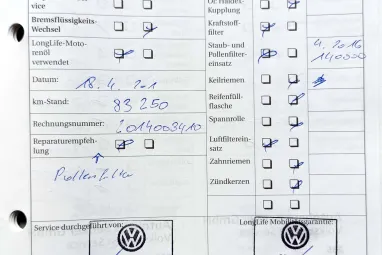 vice
Bremsflüssigkeits-
Wechsel
LongLife-Moto-
renöl
verwendet
Datum: 18.4.201
km-Stand: 83 250
Rechnungsnummer: 2014003410
Reparaturempfeh-
lung
Pollenfilter
Service durchgeführt von:
Kupplung
Kraftstoff-
filter
Staub- und
Pollenfilter-
einsatz
4.2016
140000
Keilriemen
Reifenfüll-
flasche
Spannrolle
Luftfilterein-
satz
Zahnriemen
Zündkerzen
LongLife Mobilitätsgarantie: